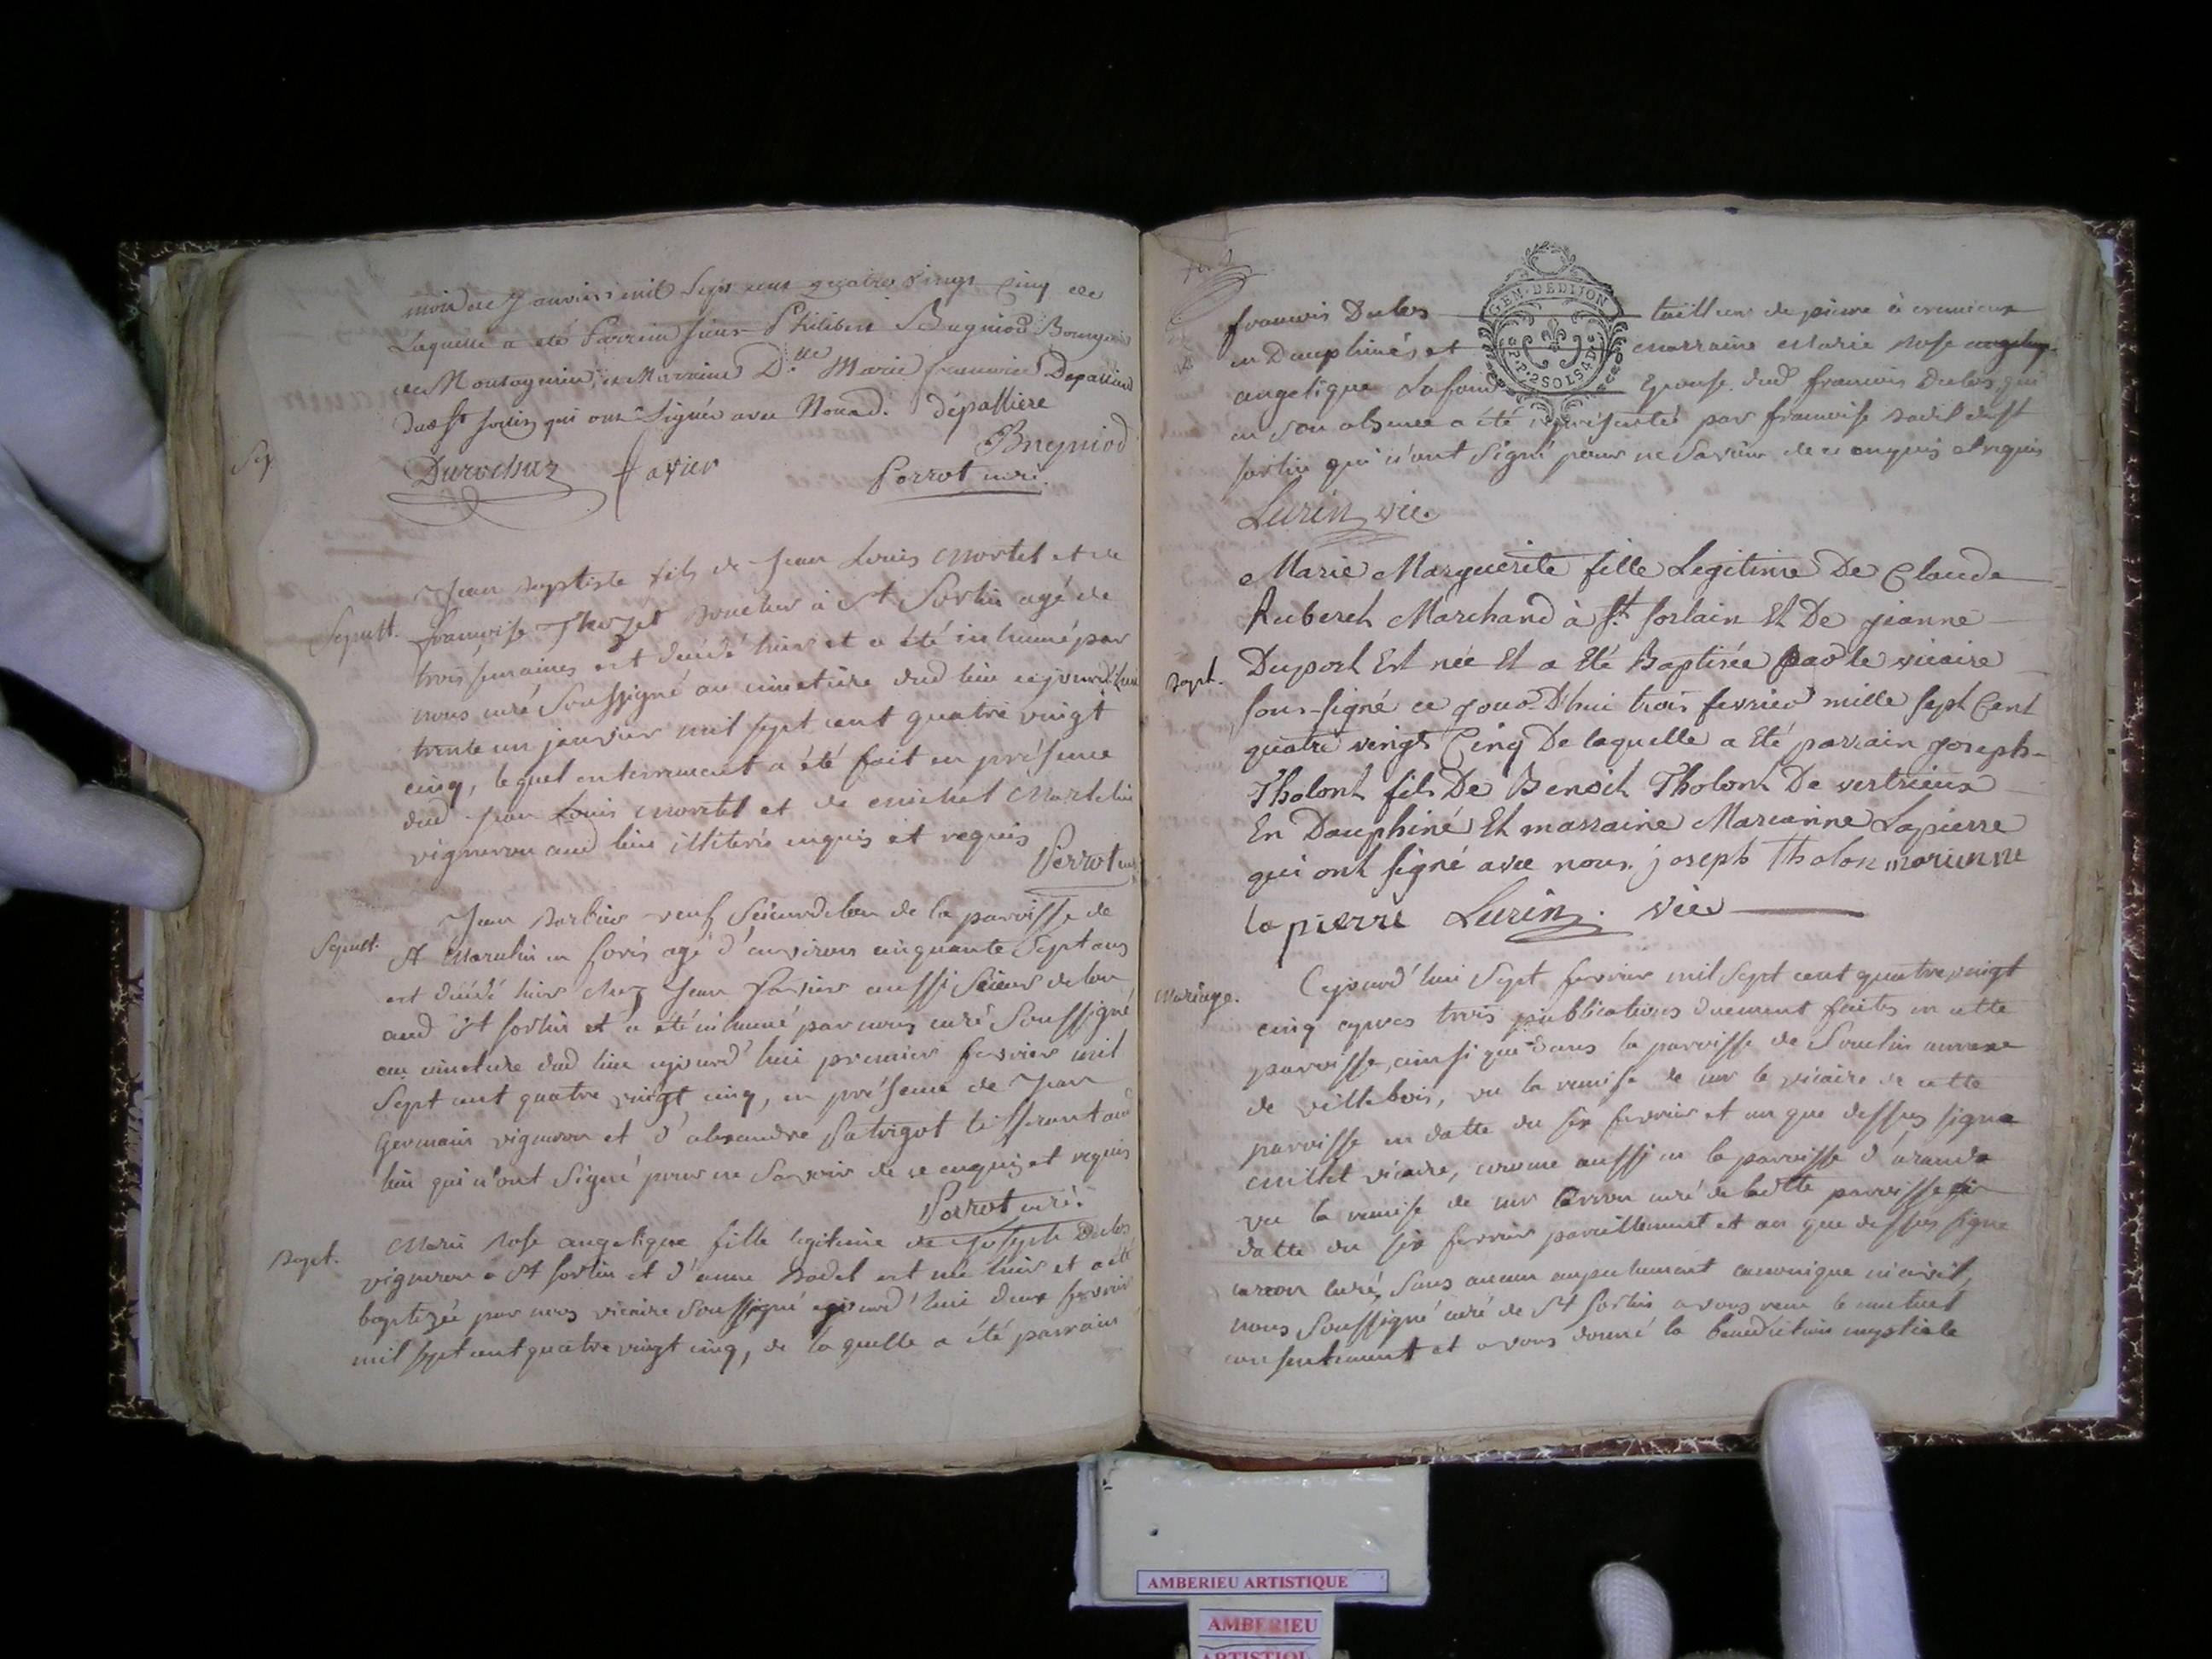 mois de Janvier mil Sept cent quatre vingt Cinq de
Laquelle a été Parrein sieur Philibert Bugniod Bourgeois
de Montagnieu, et Marraine D.lle Marie francoise Depallier
dud St sorlin qui ont Signés avec Nous. dépalliere
Bugniod
Durochuz favier Perrot curé.
Sep
Sepult.
Jean baptiste fils de Jean Louis Mortel et de
françoise Thozet boucher à St Sorlin agé de
trois semaines est décédé hier et a été inhumé par
nous curé Soussigné au cimetiere dud lieu cejourd'hui
trente un janvier mil sept cent quatre vingt
cinq, lequel enterrement a été fait en présence
dud Jean Louis Mortel et de michel Martelin
vigneron aud lieu illiterés enquis et requis
Perrot curé
Sepult.
Jean barbier veuf Scieur de lon de la paroisse de
St Marcelin en forés agé d'environ cinquante Sept ans
est décédé hier chez Jean favier aussi Scieur de lon
aud St sorlin et a été inhumé par nous curé Soussigné
au cimetiere dud lieu cejourd'hui premier fevrier mil
Sept cent quatre vingt cinq, en présence de Jean
Germain vigneron et d'alexandre Patrigot tisserant aud
lieu qui n'ont Signé pour ne Savoir de ce enquis et requis
Perrot curé.
Bapt.
Marie Rose angelique fille legitime de Joseph Dubos
vigneron a St sorlin et d'anne badel est née hier et a été
baptizée par nous vicaire Soussigné cejourd'hui deux fevrier
mil sept cent quatre vingt cinq, de laquelle a été parrain
GEN. DE DIJON
P.P. 2 SOLS 4 D.
francois Dubos tailleur de pierre à cremieux
en Dauphinés et marraine Marie Rose
angelique Lafond Epouse dud francois Dubos, qui
en son absence a été représentée par francoise badel dud St
sorlin qui n'ont Signé pour ne Savoir de ce enquis et requis
Lurin vic.
Bapt.
Marie Marguerite fille Legitime De Claude
Auberet Marchand à St. sorlain Et De jeanne
Duport Est née Et a Eté Baptisée par le vicaire
sous-signé ce jour d'hui trois fevrier mille sept Cent
quatre vingt Cinq De laquelle a Eté parrain joseph
Tholont fils De Benoit Tholont De vertrieux
En Dauphiné Et marraine Marianne Lapierre
qui ont signé avec nous. joseph tholon marienne
lapierre Lurin. vic
Mariage.
Cejourd'hui Sept fevrier mil Sept cent quatre vingt
cinq apres trois publications duement faites en cette
paroisse, ainsi que dans la paroisse de Souclin annexe
de villebois, vu la remise de mr le vicaire de cette
paroisse en datte du six fevrier et an que dessus signé
millet vicaire, comme aussi en la paroisse d'arandas
vu la remise de mr curé de ladte paroisse en
datte du six fevrier pareillement et an que dessus signé
curé, Sans aucun empechement canonique ni civil,
nous Soussigné curé de St sorlin avons reçu le mutuel
consentement et avons donné la benediction nuptiale
AMBERIEU ARTISTIQUE
AMBERIEU
ARTISTIQUE